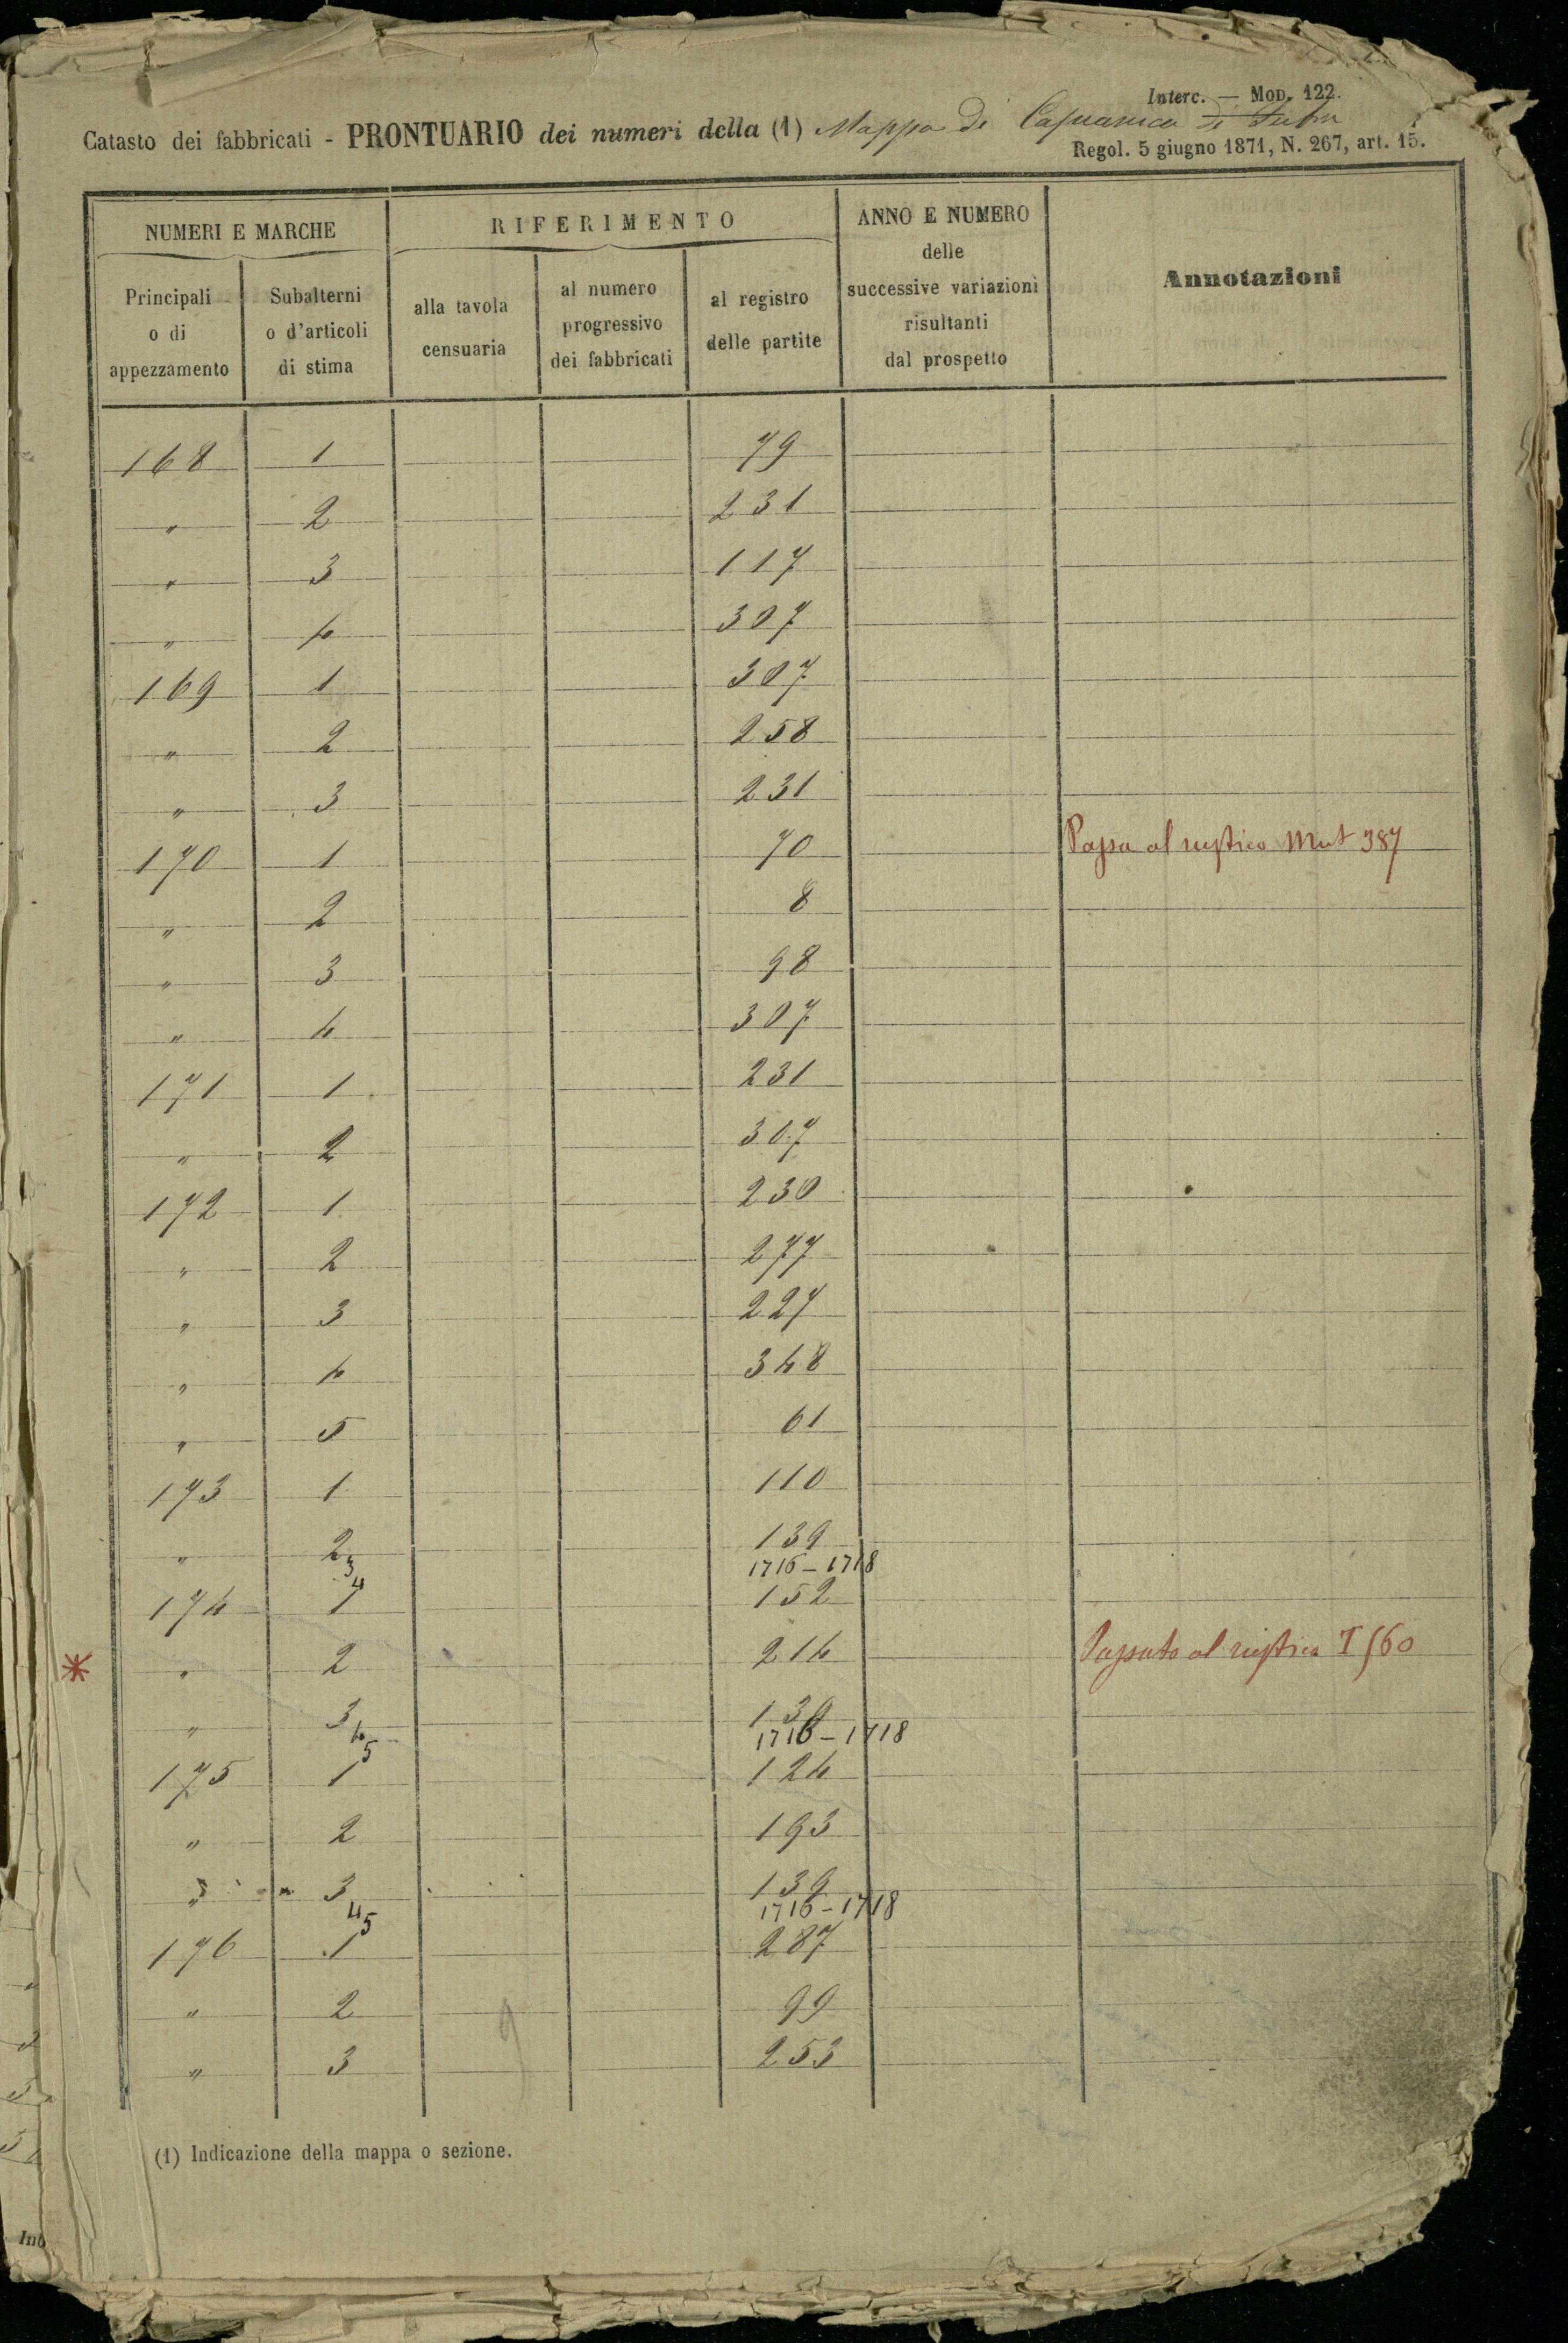 Interc. — Mod. 122.
Catasto dei fabbricati - PRONTUARIO dei numeri della (1) Mappa di Capranica di Sutri
Regol. 5 giugno 1871, N. 267, art. 15.
NUMERI E MARCHE
Principali o di appezzamento
Subalterni o d'articoli di stima
RIFERIMENTO
alla tavola censuaria
al numero progressivo dei fabbricati
al registro delle partite
ANNO E NUMERO delle successive variazioni risultanti dal prospetto
Annotazioni
168 1 79
" 2 231
" 3 117
" 4 307
169 1 307
" 2 258
" 3 231
170 1 70 Passa al rustico Mut 387
" 2 8
" 3 98
" 4 307
171 1 231
" 2 307
172 1 230
" 2 277
" 3 227
" 4 348
" 5 61
173 1 110
" 2 139
3 4 1716-1718
174 1 152
* " 2 214 Passato al rustico T 560
" 3 139
4 5 1716-1718
175 1 124
" 2 193
" 3 139
4 5 1716-1718
176 1 287
" 2 99
" 3 253
(1) Indicazione della mappa o sezione.